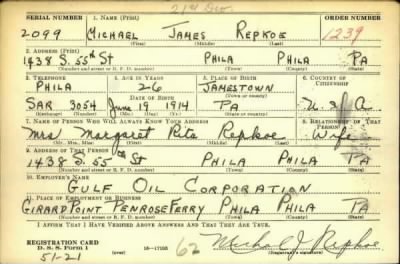 21st Div.
SERIAL NUMBER 1. NAME (Print) ORDER NUMBER
2099 MICHAEL JAMES REPKOE 1239
(First) (Middle) (Last)
2. ADDRESS (Print)
1438 S. 55th St PHILA PHILA PA
(Number and street or R. F. D. number) (Town) (County) (State)
3. TELEPHONE 4. AGE IN YEARS 5. PLACE OF BIRTH 6. COUNTRY OF CITIZENSHIP
PHILA 26 JAMESTOWN
(Town or county)
SAR 3054 June 19 1914 PA U.S.A
7. NAME OF PERSON WHO WILL ALWAYS KNOW YOUR ADDRESS 8. RELATIONSHIP OF THAT PERSON
Mrs Margaret Rita Repkoe Wife
9. ADDRESS OF THAT PERSON
1438 S. 55th St PHILA PHILA PA
(Number and street or R. F. D. number) (Town) (County) (State)
10. EMPLOYER'S NAME
GULF OIL CORPORATION
11. PLACE OF EMPLOYMENT OR BUSINESS
GIRARD POINT PENROSE FERRY PHILA PHILA PA
(Number and street or R. F. D. number) (Town) (County) (State)
I AFFIRM THAT I HAVE VERIFIED ABOVE ANSWERS AND THAT THEY ARE TRUE.
REGISTRATION CARD
D. S. S. FORM 1 62 Michael J. Repkoe
51-21 (Registrant's signature)